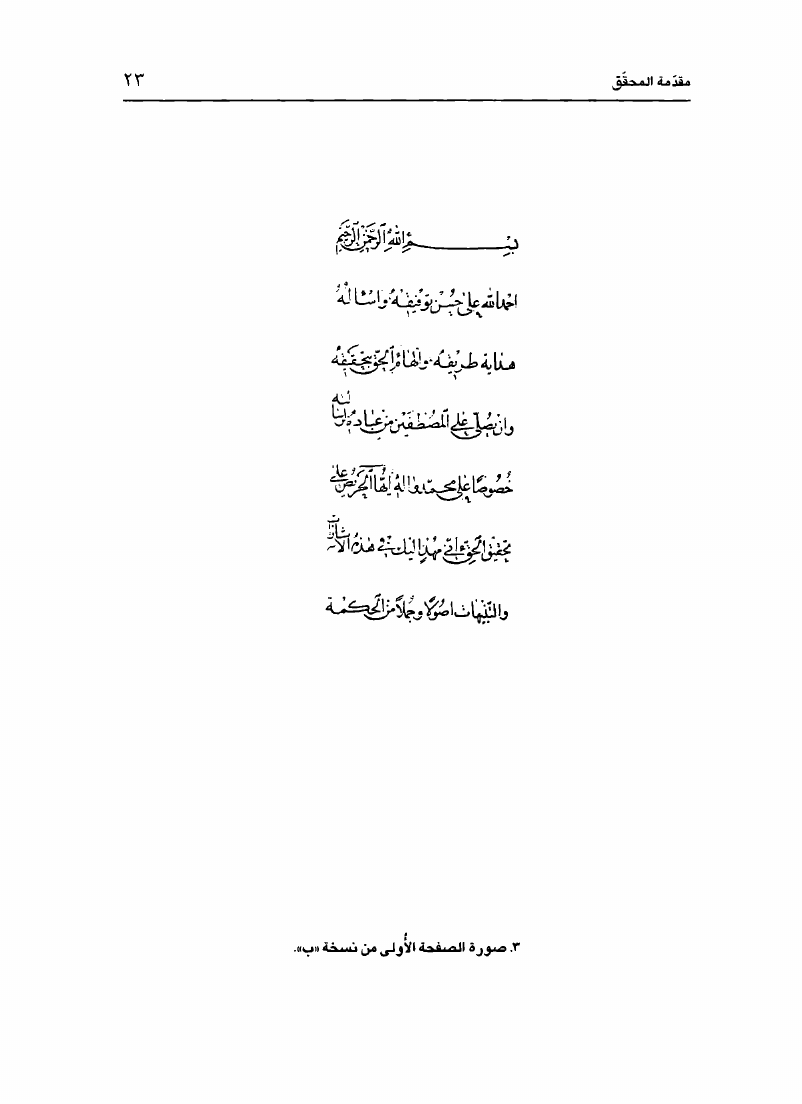 مقدّمة المحقّق ٢٣
بسم الله الرحمن الرحيم
احمد الله على حسن توفيقه واسئاله
هداية طريقه والهام الحق بتحقيقه
وان يصلى على المصطفين من عباده لرسالته
خصوصا على محمد واله ايها الحريص على
تحقيق الحق انى مهد اليك فى هذه الاشارات
والتنبيهات اصولا وجملا من الحكمة
٣. صورة الصفحة الأُولى من نسخة «ب».